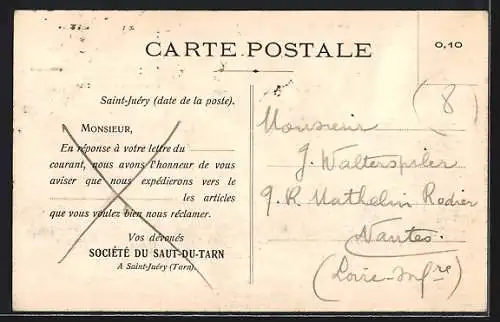 CARTE POSTALE
0,10
Saint-Juéry (date de la poste).
MONSIEUR,
En réponse à votre lettre du
courant, nous avons l'honneur de vous
aviser que nous expédierons vers le
les articles
que vous voulez bien nous réclamer.
Vos dévoués
SOCIÉTÉ DU SAUT-DU-TARN
A Saint-Juéry (Tarn).
(8)
Monsieur
J. Walterspiler
9. R. Mathelin Rodier
Nantes.
(Loire-Infre)